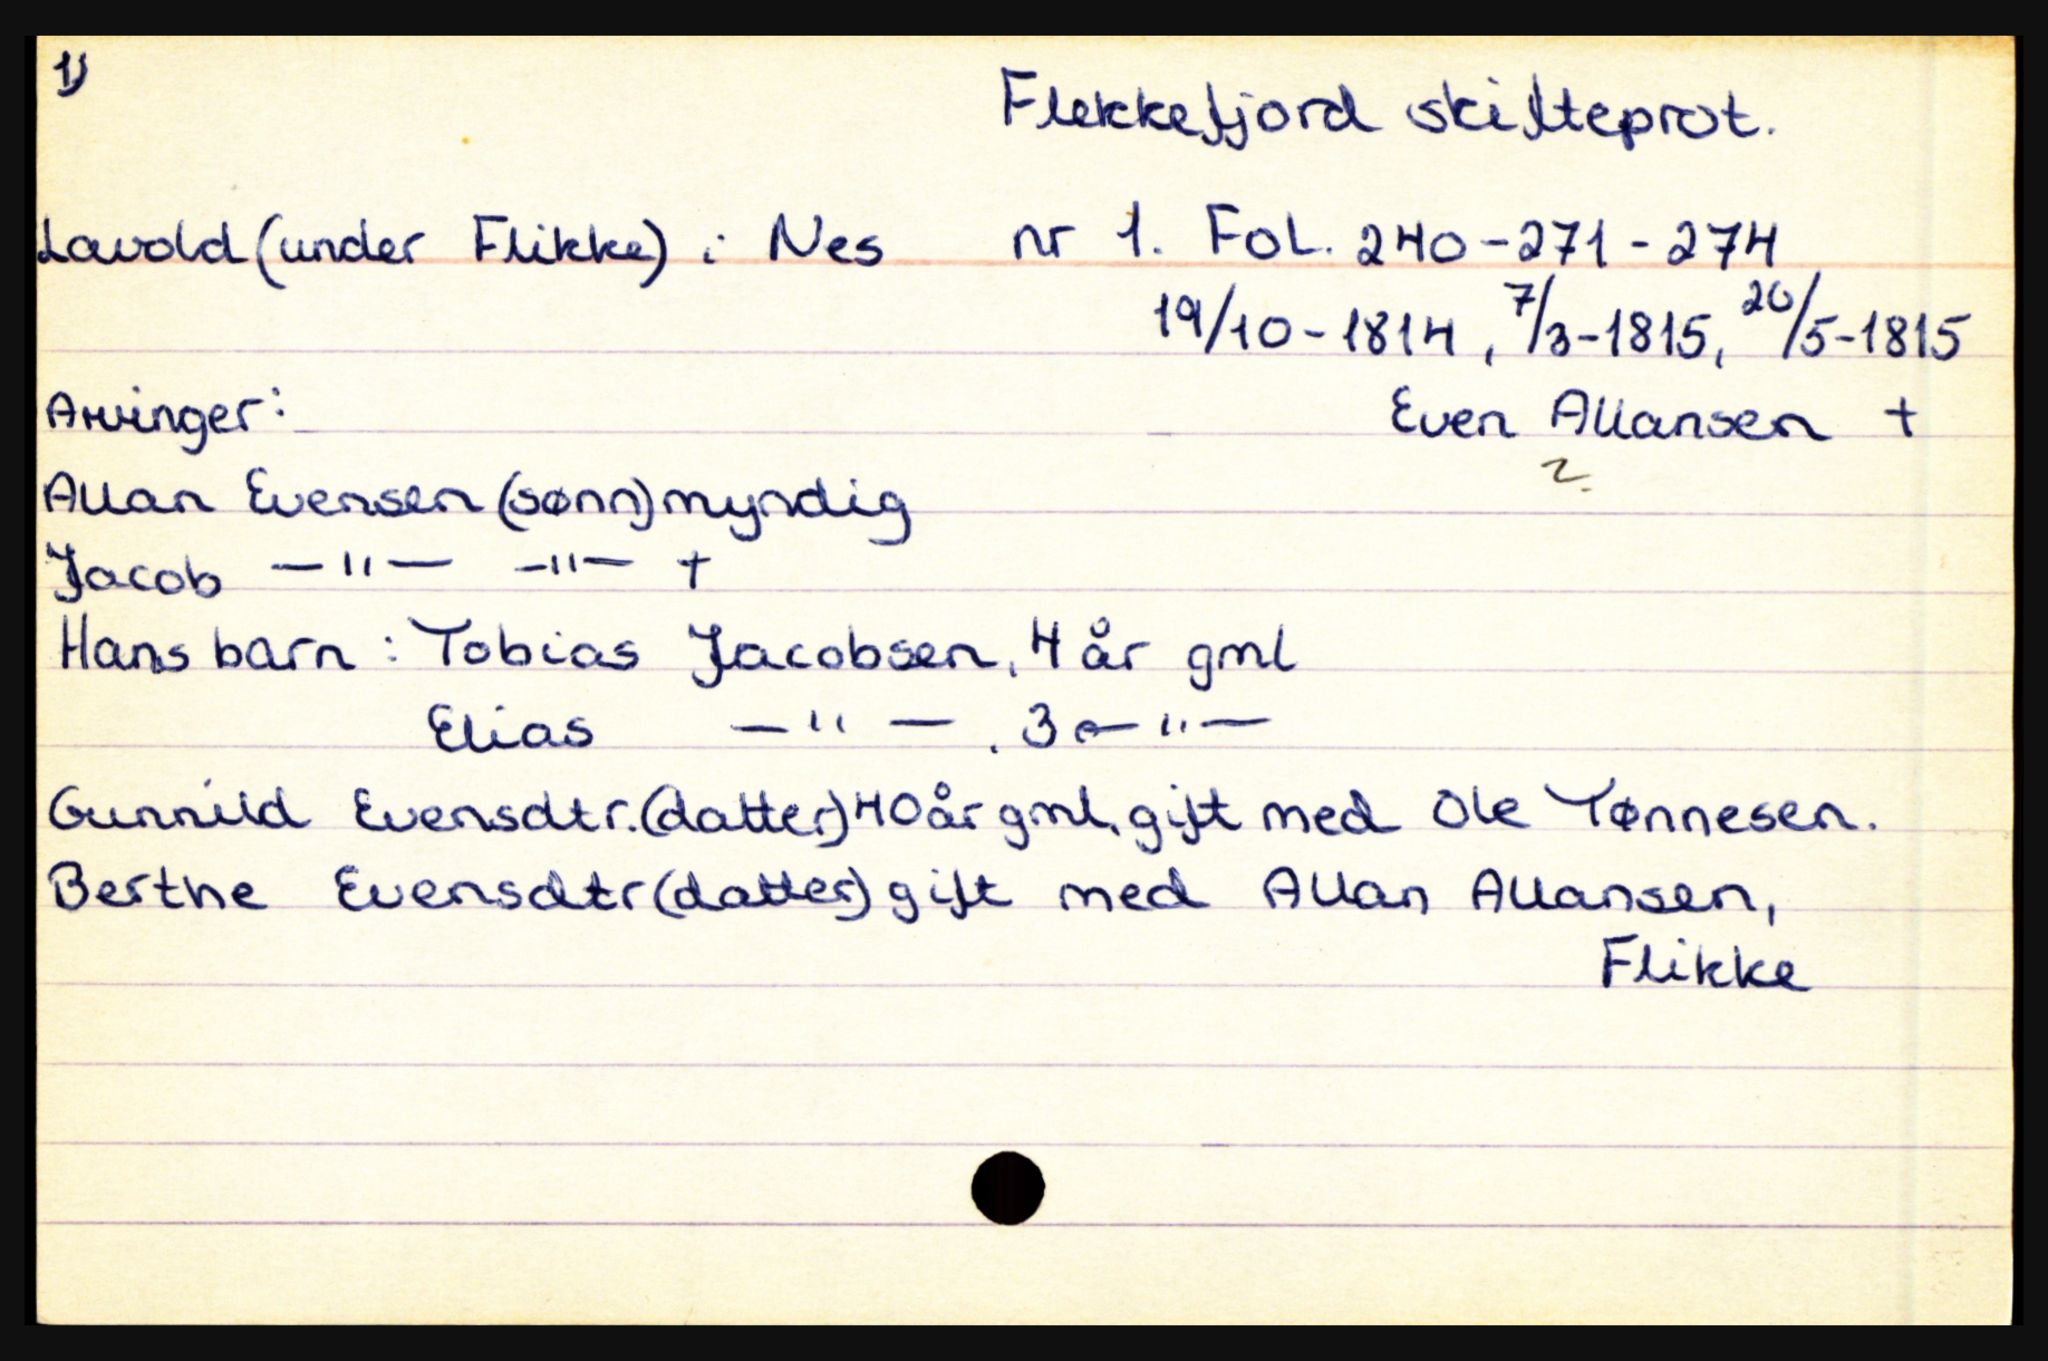 1)
Flekkefjord skifteprot.
Lavold (under Flikke) i Nes nr 1. Fol. 240-271-274
19/10-1814, 7/3-1815, 20/5-1815
Arvinger: Even Allansen +
?
Allan Evensen (sønn) myndig
Jacob —"— —"— +
Hans barn: Tobias Jacobsen, 4 år gml
Elias —"—, 3 —"—
Gunnild Evensdtr. (datter) 40 år gml, gift med Ole Tønnesen.
Berthe Evensdtr (datter) gift med Allan Allansen,
Flikke